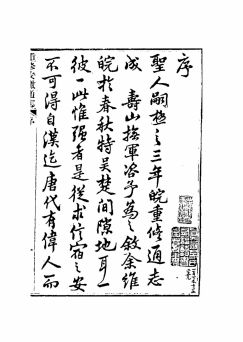 序
聖人嗣極之三年皖重修通志
成　壽山撫軍咨予為之敘余維
皖於春秋特吳楚間隙地耳一
彼一此惟强者是從求信宿之安
不可得自漢迄唐代有偉人而